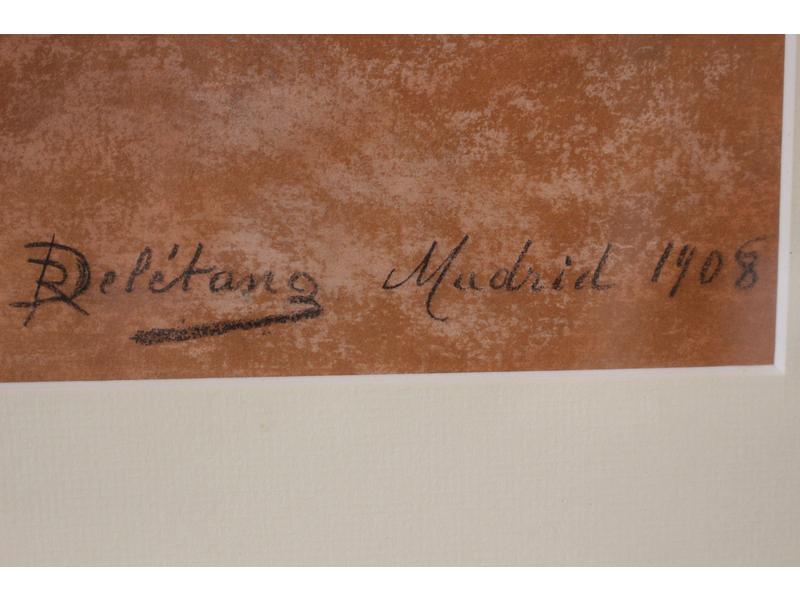 RDelétang Madrid 1908